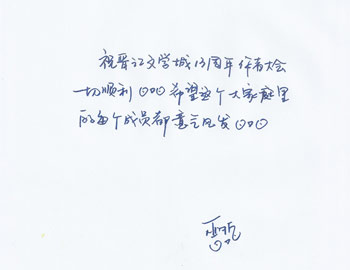 祝晋江文学城13周年作者大会
一切顺利○○○希望这个大家庭里
的每个成员都意气风发○○○